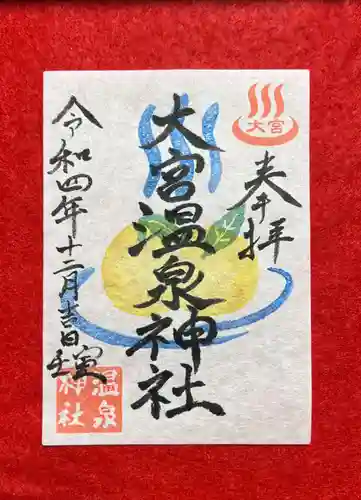 大宮
奉拝
大宮温泉神社
令和四年十二月吉日
温泉
神社